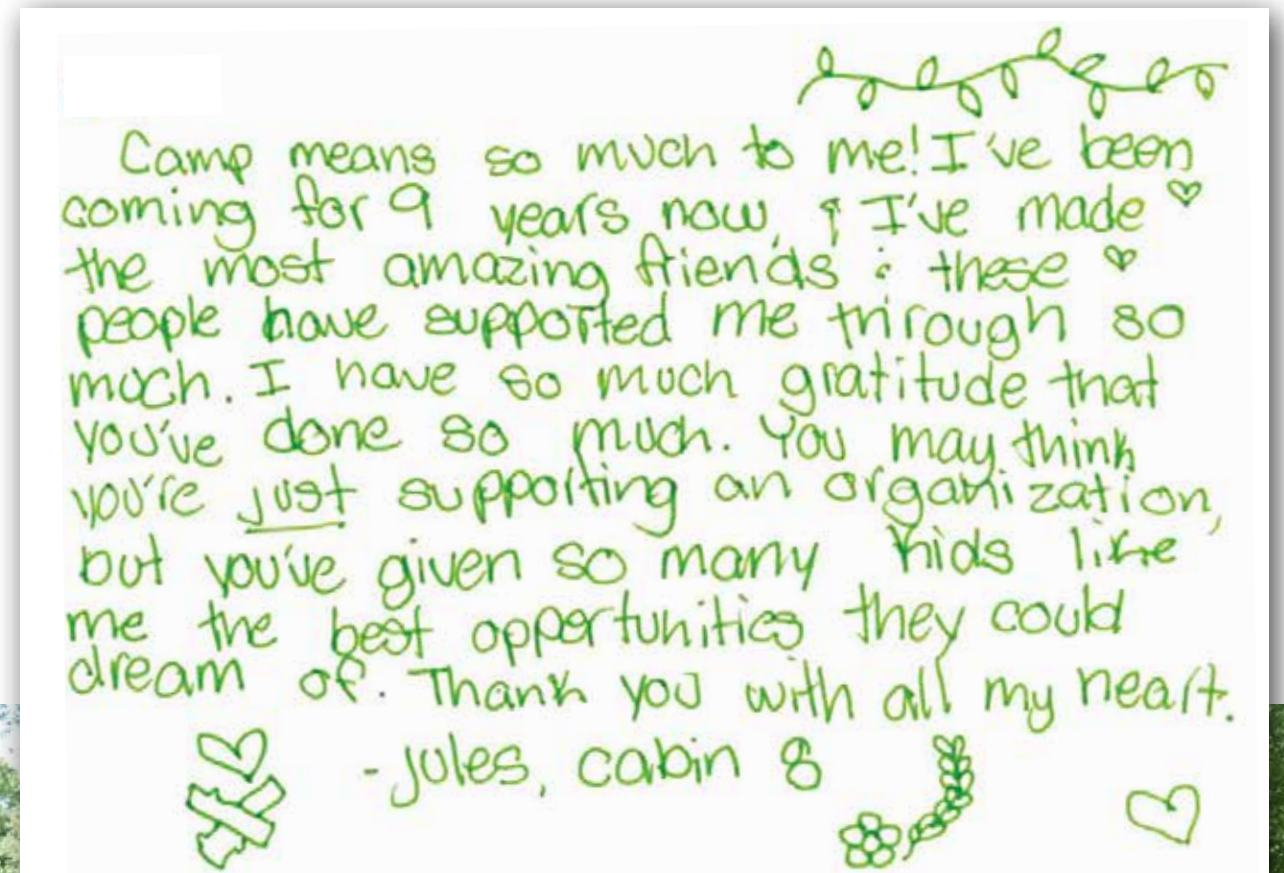 Camp means so much to me! I've been
coming for 9 years now, & I've made
the most amazing friends & these
people have supported me through so
much. I have so much gratitude that
you've done so much. You may think
you're just supporting an organization,
but you've given so many kids like
me the best opportunities they could
dream of. Thank you with all my heart.
- Jules, cabin 8